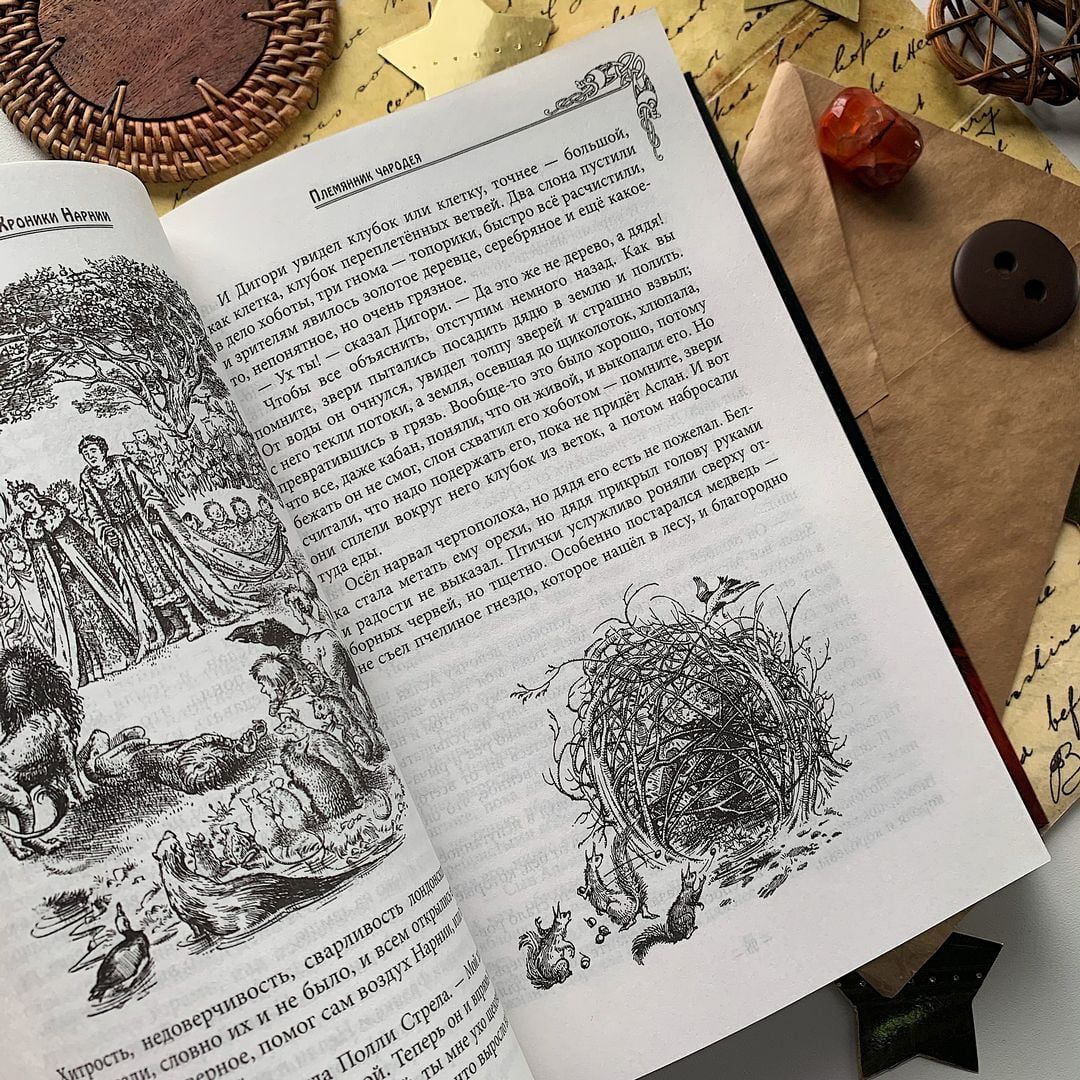 Хроники Нарнии
Хитрость, недоверчивость, сварливость лондонско
али, словно их и не было, и всем открылис
верное, помог сам воздух Нарнии, или
да Полли Стрела. —
ой. Теперь он и вправ
ты мне ухо щеко
что вырос
Племянник чародея
И Дигори увидел клубок или клетку, точнее — большой,
как клетка, клубок переплетённых ветвей. Два слона пустили
в дело хоботы, три гнома — топорики, быстро всё расчистили,
и зрителям явилось золотое деревце, серебряное и ещё какое-
то, непонятное, но очень грязное.
— Ух ты! — сказал Дигори. — Да это же не дерево, а дядя!
Чтобы все объяснить, отступим немного назад. Как вы
помните, звери пытались посадить дядю в землю и полить.
От воды он очнулся, увидел толпу зверей и страшно взвыл;
с него текли потоки, а земля, осевшая до щиколоток, хлюпала,
превратившись в грязь. Вообще-то это было хорошо, потому
что все, даже кабан, поняли, что он живой, и выкопали его. Но
бежать он не смог, слон схватил его хоботом — помните, звери
считали, что надо подержать его, пока не придёт Аслан. И вот
они сплели вокруг него клубок из веток, а потом набросали
туда еды.
Осёл нарвал чертополоха, но дядя его есть не пожелал. Бел-
ка стала метать ему орехи, но дядя прикрыл голову руками
и радости не выказал. Птички услужливо роняли сверху от-
борных червей, но тщетно. Особенно постарался медведь —
не съел пчелиное гнездо, которое нашёл в лесу, и благородно
hope.